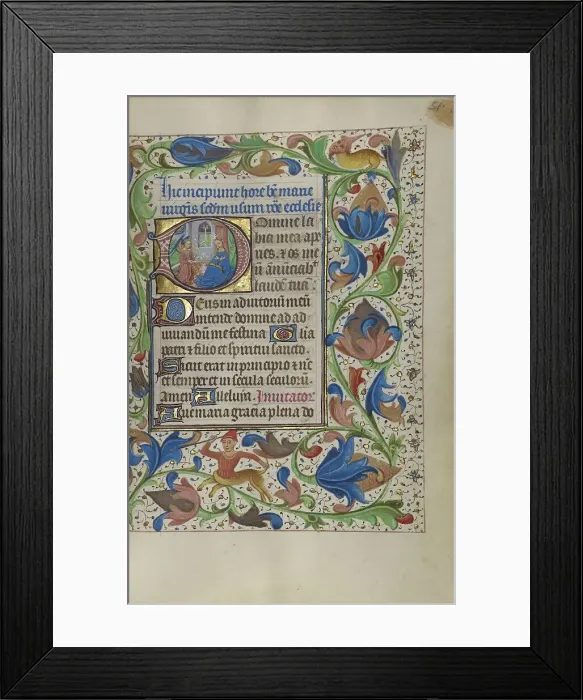 Hic incipiunt hore bte marie
uirginis scdm usum roe ecclesie
Domine la
bia mea ape
ries. et os meu
Deus in adiutoriu meu
intende domine ad ad
iuuandum me festina Glia
patri et filio et spiritui sancto.
Sicut erat in principio et nuc
et semper et in secula seculoru.
amen Alleluya. Inuitator
Aue maria gracia plena do